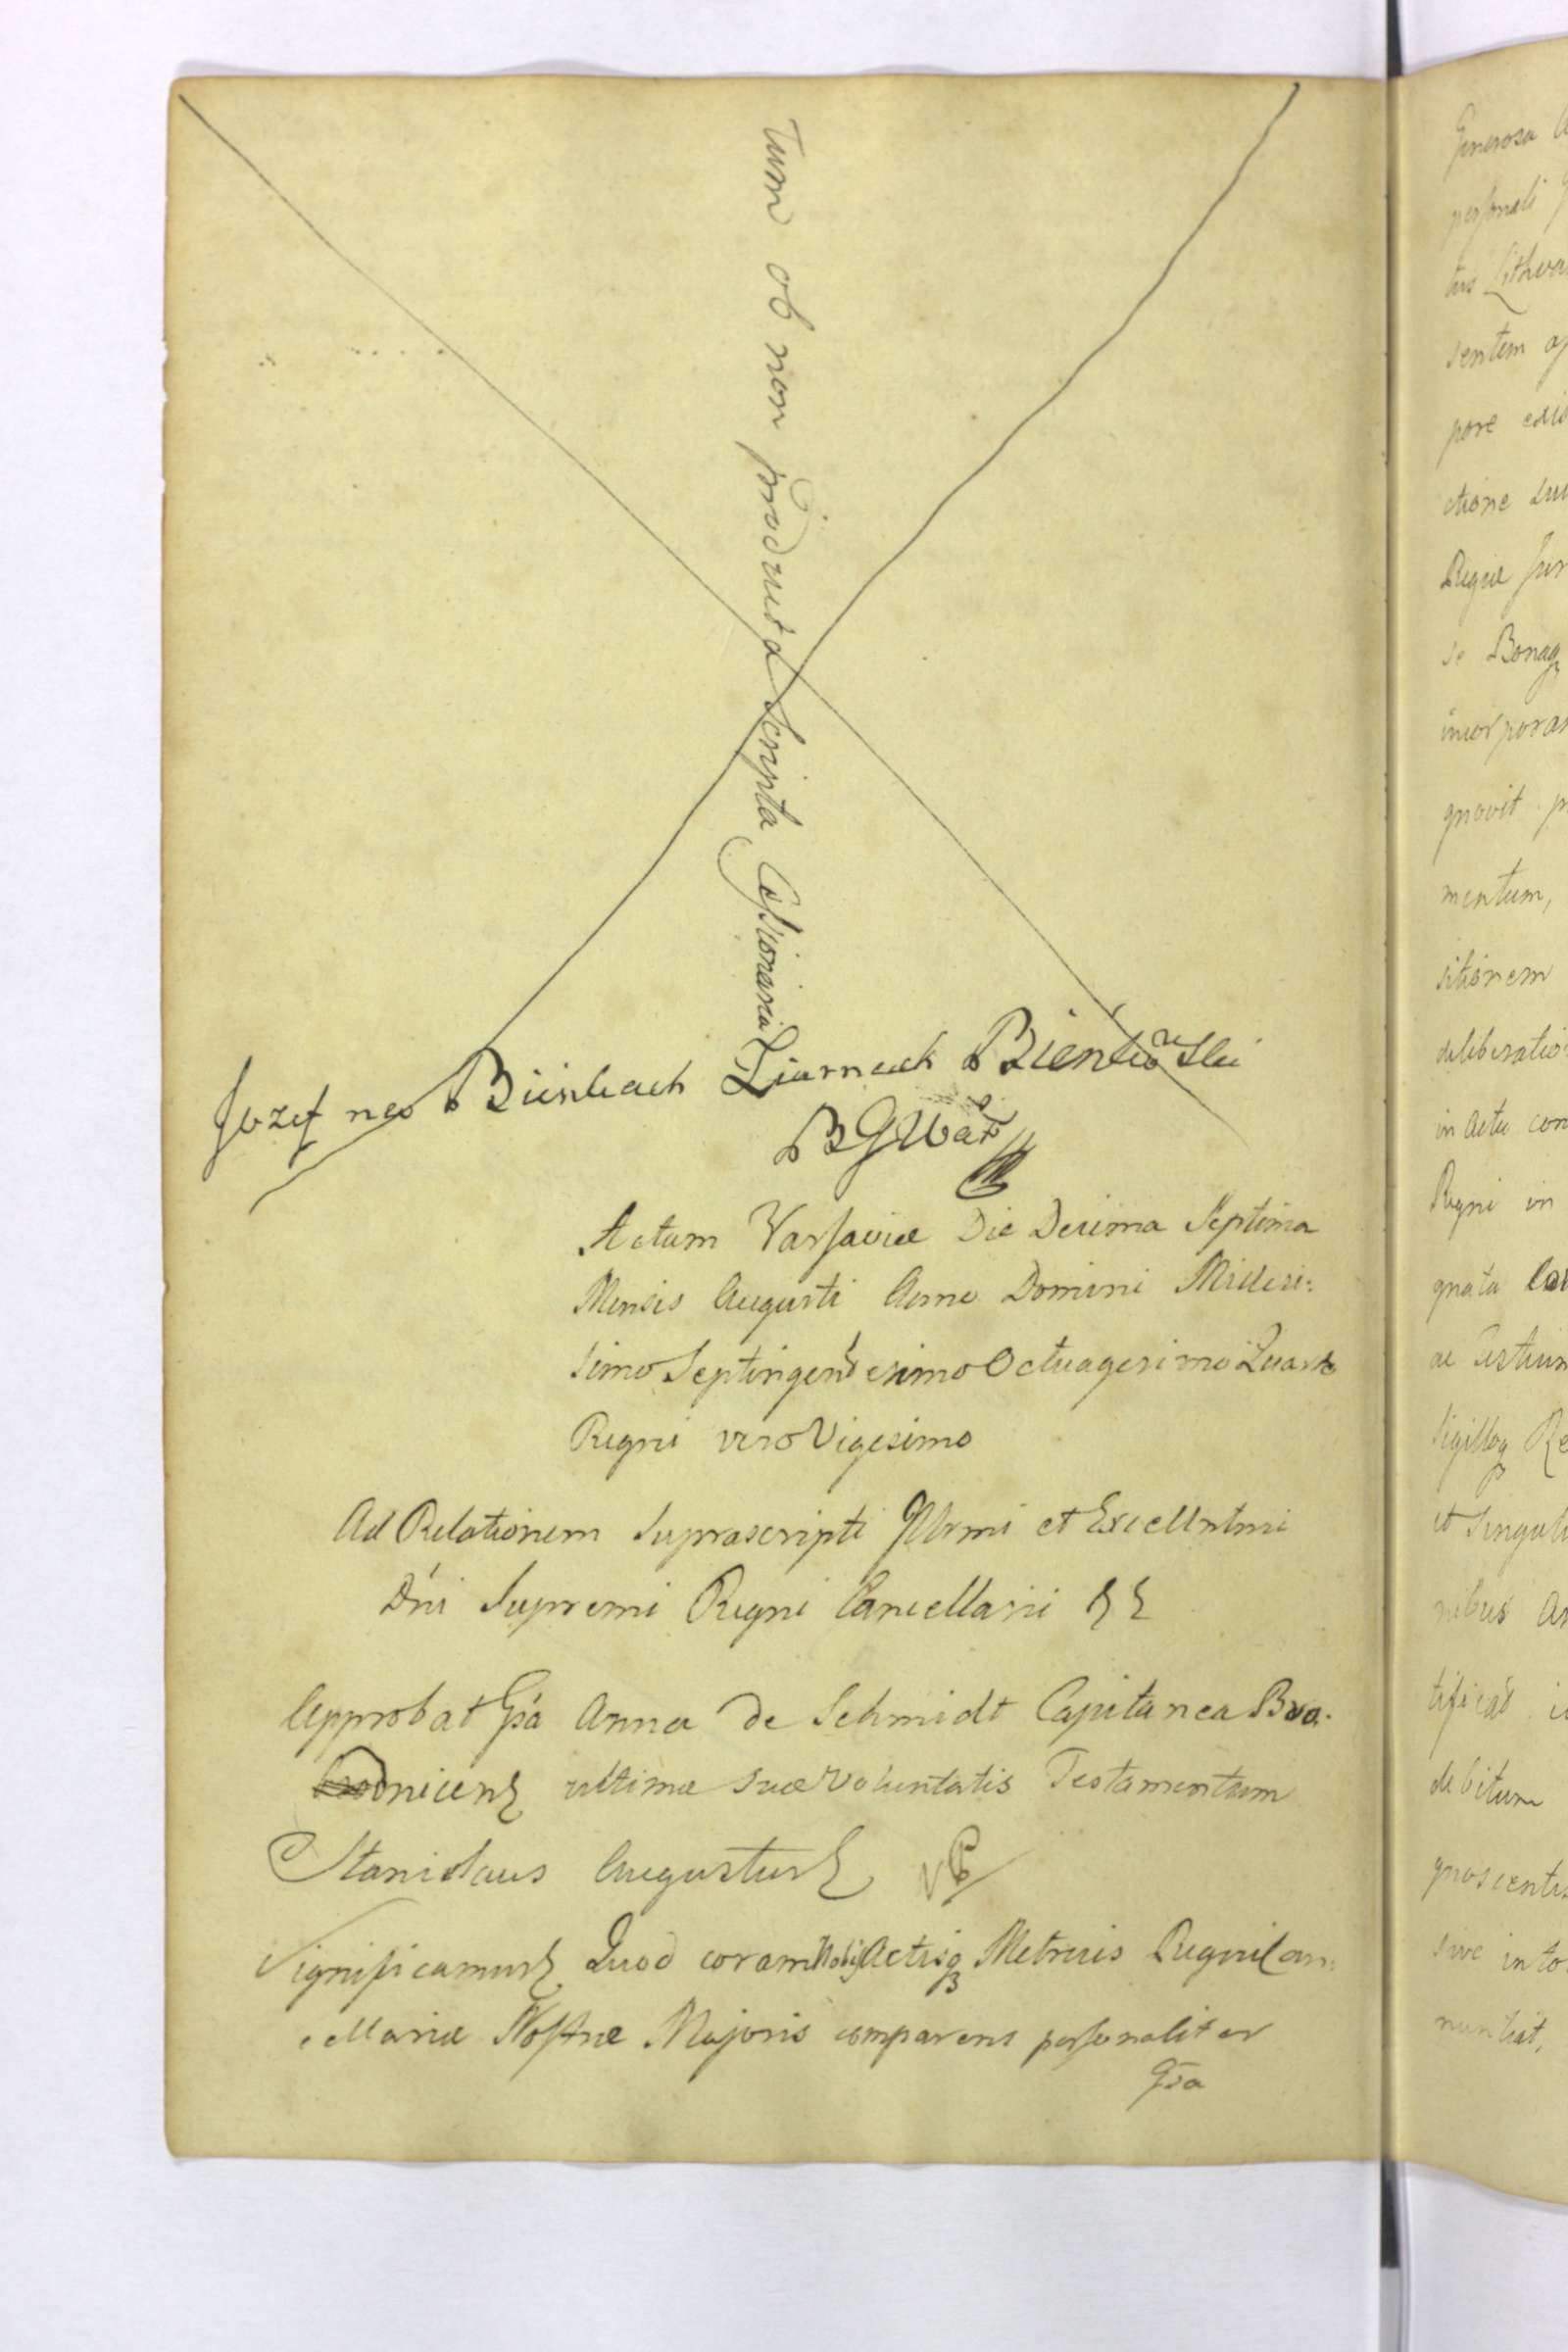 Tum ob non producta Scripta Cessionaria
Jozef na Bieńkach Ziarnach Bieńkowski
BGWar
Actum Varsaviæ Die Decima Septima
Mensis Augusti Anno Domini Millesi:
simo Septingentesimo Octuagesimo Quarto
Regni vero Vigesimo
Ad Relationem Suprascripti Illrmi et Excellntmi
Dńi Supremi Regni Cancellarii
Approbat Gsa Anna de Schmidt Capitanea Bro.
dnicens ultimæ suæ Voluntatis Testamentum
Stanislaus Augustus
Significamus Quod coram Nobis Actisq Metrices Regni Can:
cellariæ Nostræ Majoris comparens personaliter
Gsa
Generosa
personali
tus Lithva
sentem
pore
ctione
Regiæ Jur
se Bonaq
incorpora
gnovit
mentum,
sitionem
deliberatio
in Actu con
Regni in
gnata
ac
Sigilloq Re
et Singul
nibus
tificat
debitum
gnoscentis
sive into
nuntiat,